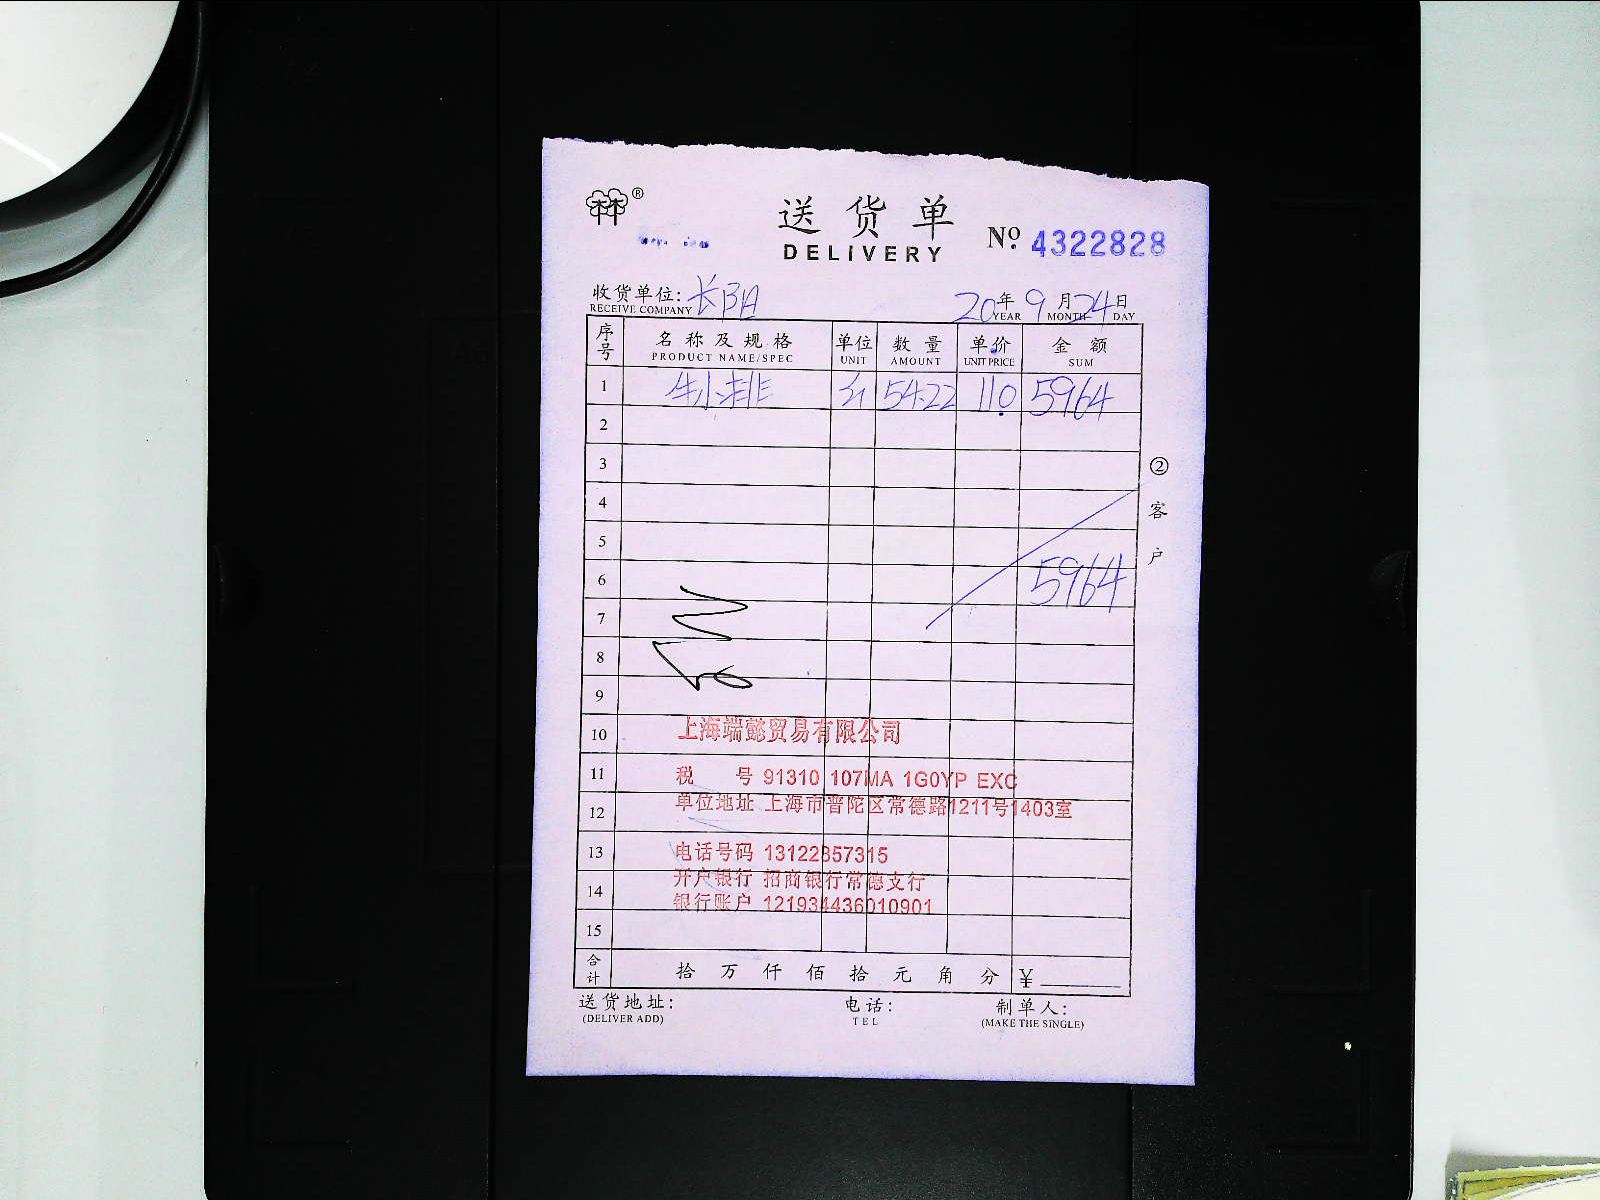 ®
送货单
DELIVERY
№ 4322828
收货单位: 长阳
RECEIVE COMPANY
20年9月24日
YEAR MONTH DAY
序号 名称及规格 单位 数量 单价 金额
PRODUCT NAME/SPEC UNIT AMOUNT UNIT PRICE SUM
1 牛小排 54.22 110 5964
2
3
4
5
6 5964
7
8
9
10
11
12
13
14
15
② 客户
上海端懿贸易有限公司
税 号 91310 107MA 1G0YP EXC
单位地址 上海市普陀区常德路1211号1403室
电话号码 13122857315
开户银行 招商银行常德支行
银行账户 121934436010901
合计 拾 万 仟 佰 拾 元 角 分 ¥
送货地址: 电话: 制单人:
(DELIVER ADD) TEL (MAKE THE SINGLE)